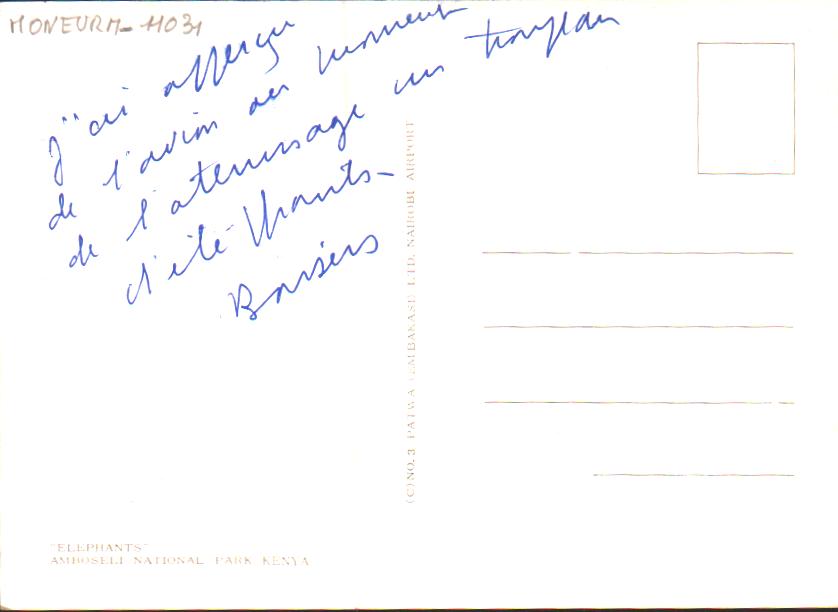 MONEURM-1103
J'ai apperçu
de l'avion au moment
de l'aterrissage un troupeau
d'éléphants-
Baisers
(C) NO. 3 PATWA (EMBAKASI) LTD. NAIROBI AIRPORT
"ELEPHANTS"
AMBOSELI NATIONAL PARK KENYA